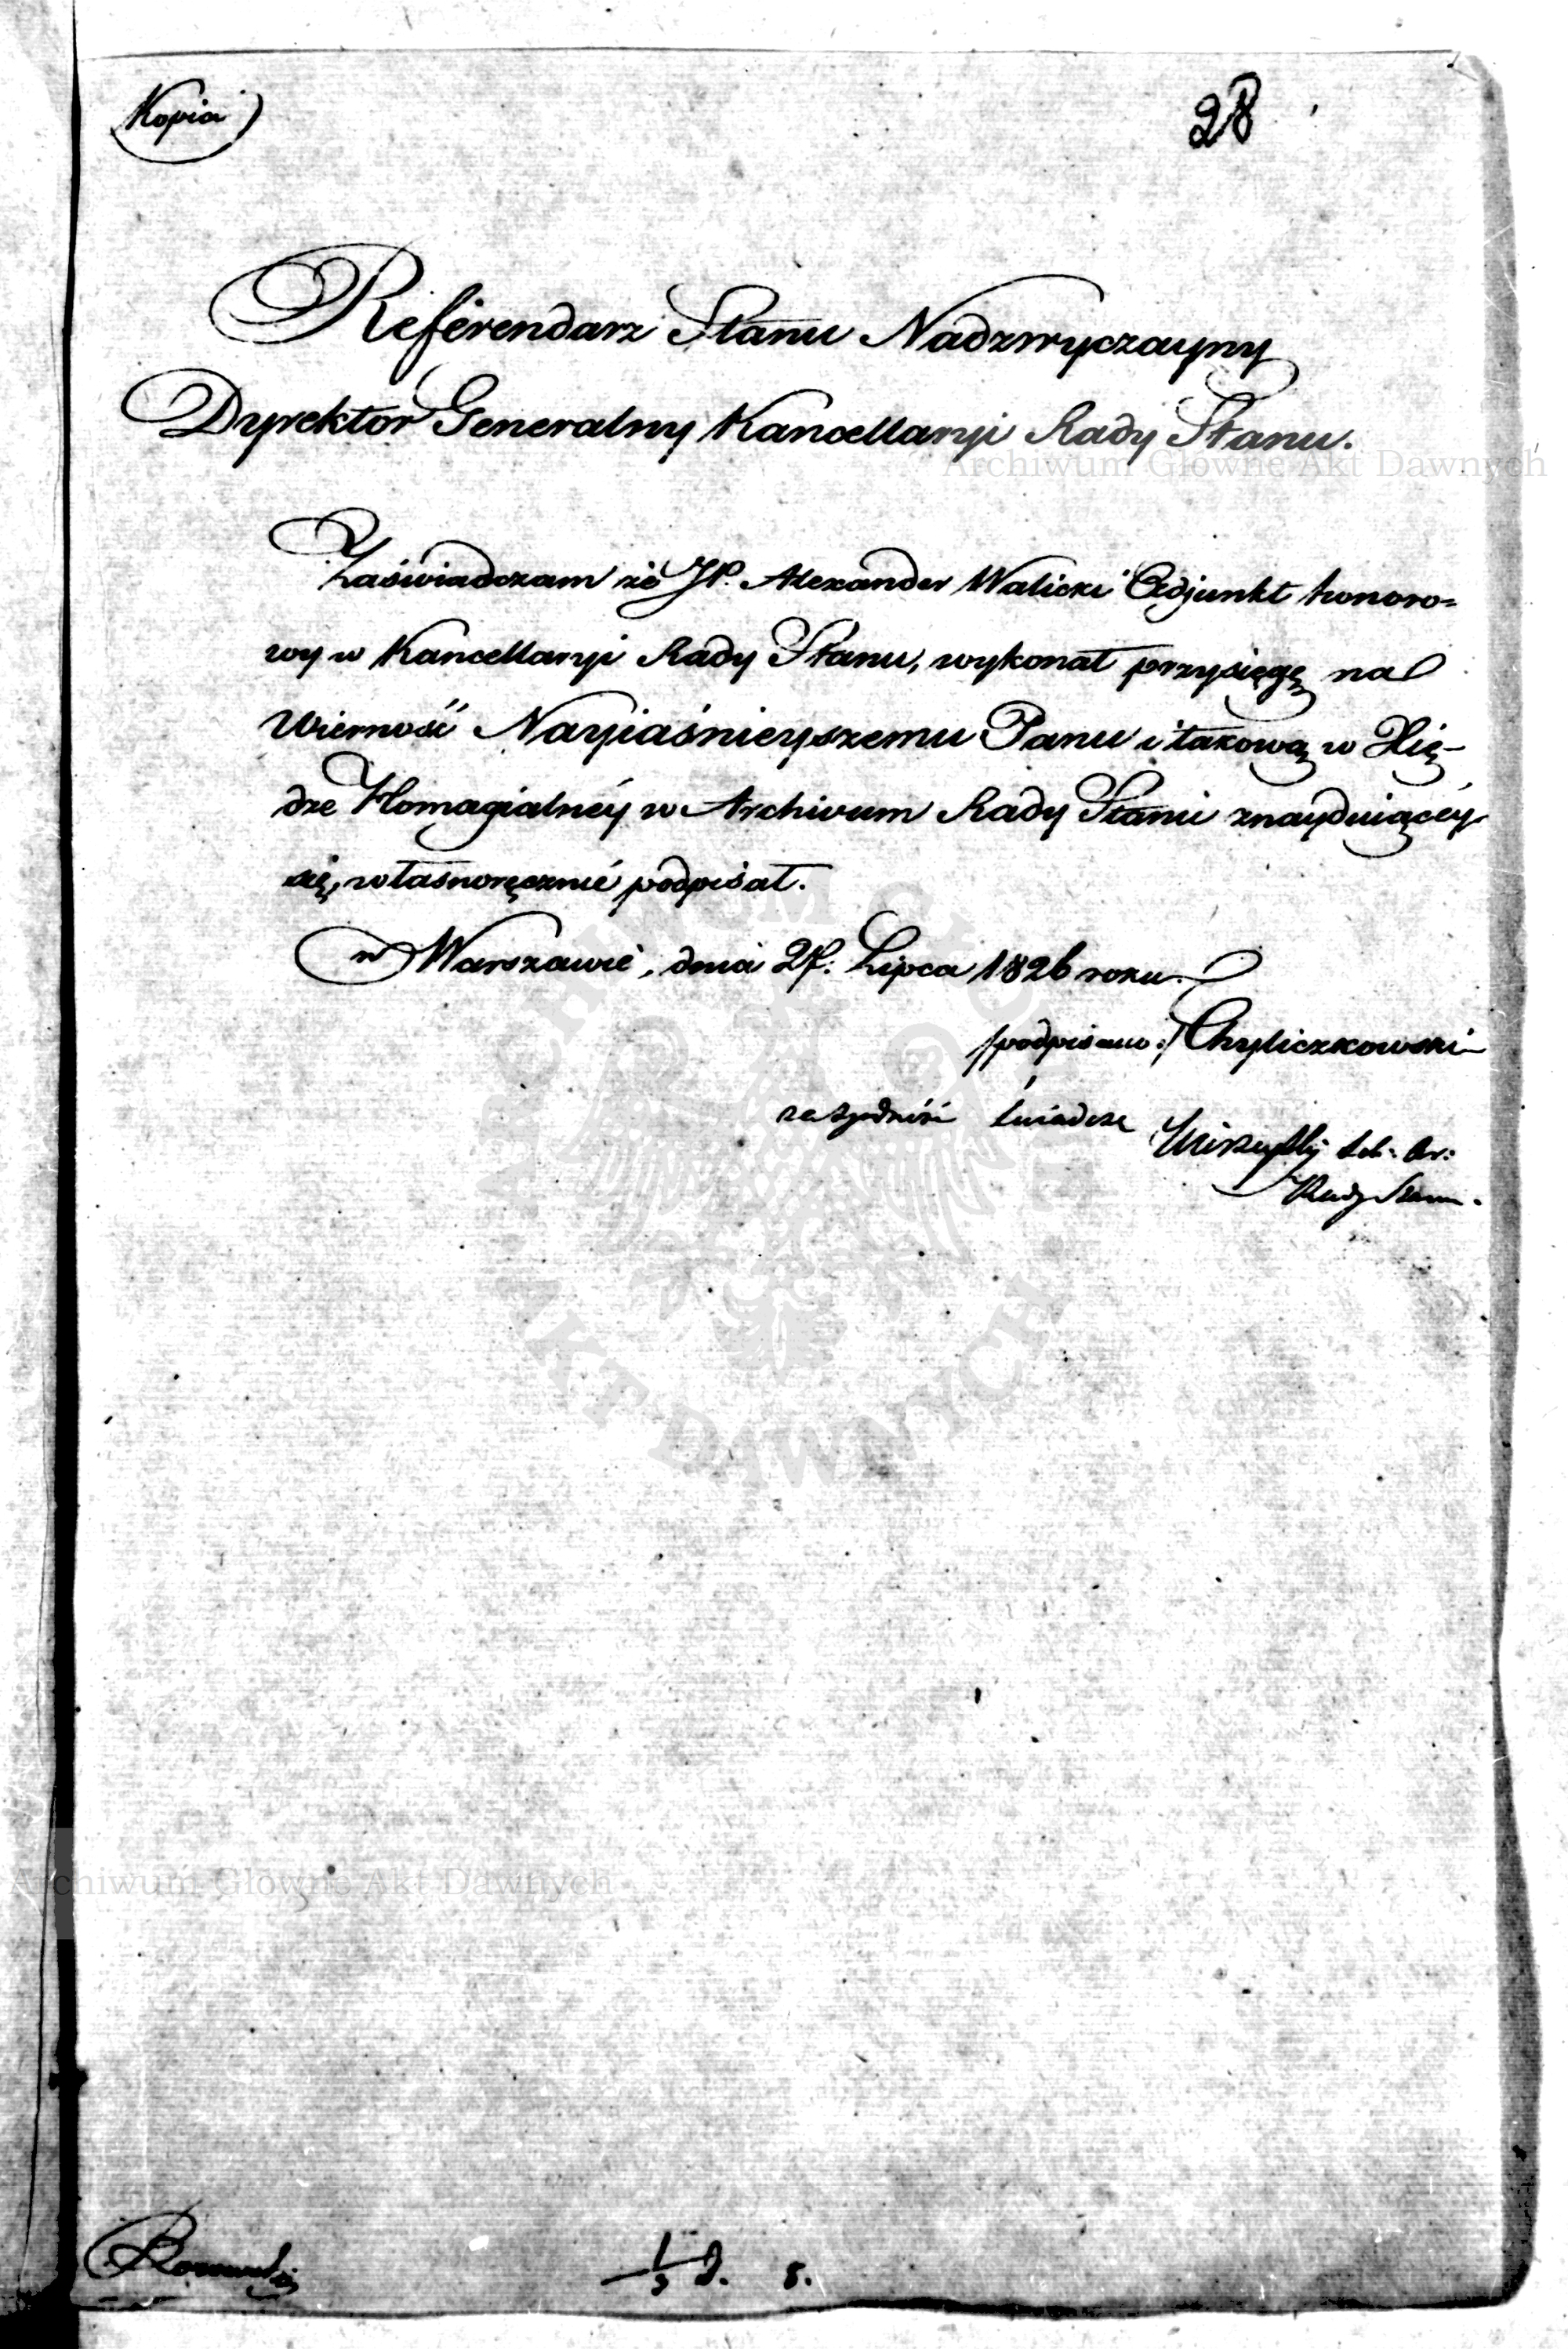 Kopia
28
Referendarz Stanu Nadzwyczayny
Dyrektor Generalny Kancellaryi Rady Stanu.
Archiwum Główne Akt Dawnych
Zaświadczam że JP. Alexander Walicki Adjunkt honoro=
wy w Kancellaryi Rady Stanu, wykonał przysięgę na
Wierność Nayiaśnieyszemu Panu i takową w Xię-
dze Homagialnéy w Archivum Rady Stanu znayduiącéy
się, własnoręcznie podpisał.
w Warszawie, dnia 27. Lipca 1826 roku.
/podpisano:/ Chyliczkowski
za zgodność świadczę
Rady Stanu.
ARCHIWUM GŁÓWNE AKT DAWNYCH
Archiwum Główne Akt Dawnych